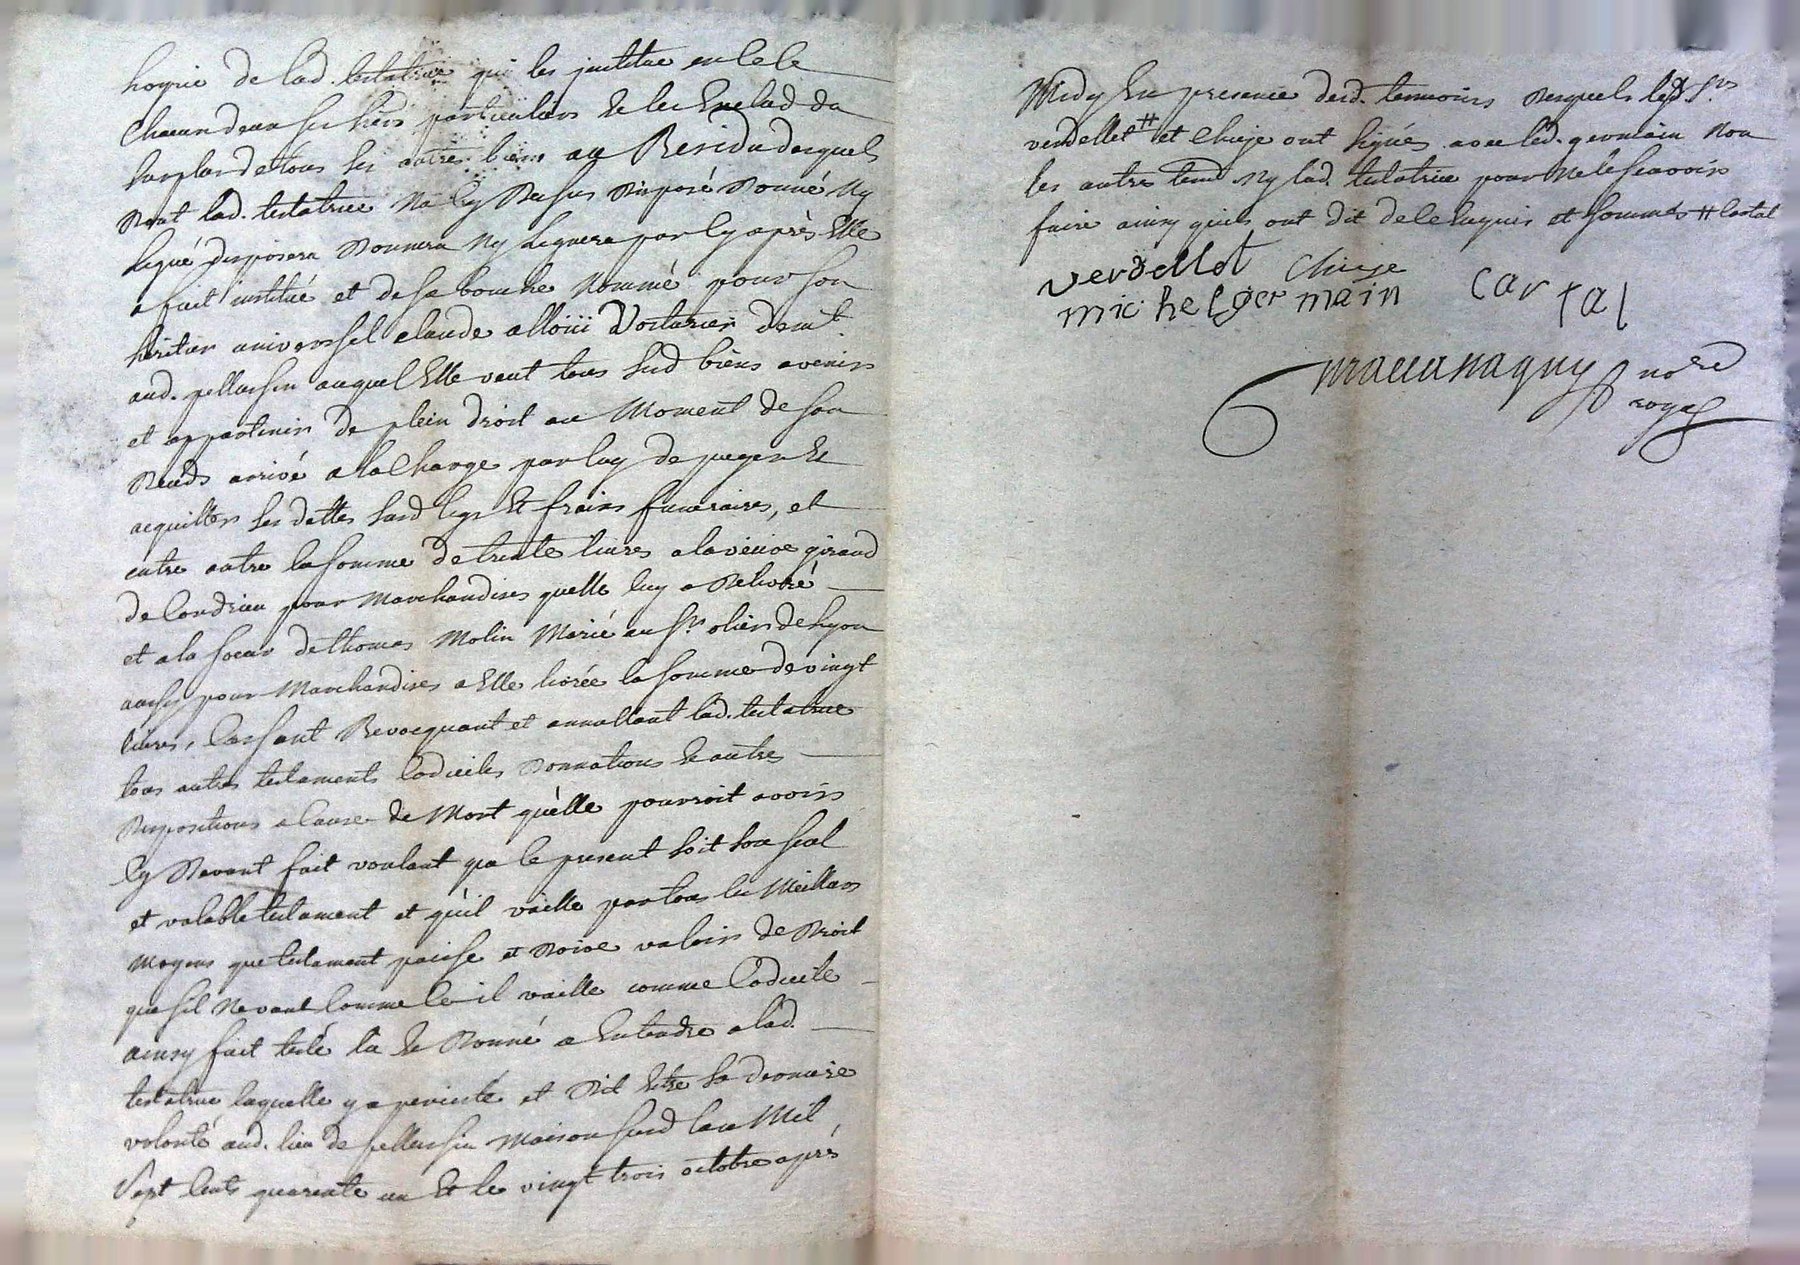 hoyrie de lad. testatrice qui les justitue en cele
Chacun deux ses hiers particuliers Et les Exclud du
surplus de tous ses autres biens au Residu desquels
Dont lad. testatrice Na Cy Dessus Disposé Donné Ny
Legué disposera Donnera Ny Leguera par Cy après Elle
a fait institué et de sa bouche Nommé pour son
héritier universel claude alloüi Voiturier demt.
aud. pellussin auquel Elle veut tous susd biens avenir
et appartenir de plein droit au Moment de son
Deceds arrivé a la Charge par luy de payer Et
acquitter ses dettes susd legs Et frais funeraires, et
entre autre la somme de trente livres a la veuve giraud
de Condrieu pour Marchandises quelle luy a Delivré
et a la soeur de thomas Molin Marié au Sr. olier de Lyon
aussy pour Marchandises a Elle livrée la somme de vingt
livres, Cassant Revocquant et annullant lad. testatrice
tous autres testaments Codicilles Donnations Et autres
Dispositions a Cause de Mort quelle pouvroit avoir
Cy Devant fait voulant que le present soit son seul
et valable testament et quil vaille par tous les Meilleurs
Moyens que testament puisse et Doive valoir de Droit
que sil Ne vaut Comme tel il vaille comme Codicille
ainsy fait testé lu Et Donné a Entendre a lad.
testatrice laquelle y a percisté et Dit Estre sa derniere
volonté aud. lieu de pellussin Maison susd lan Mil
Sept Cents quarente un Et le vingt trois octobre après
Midy En presence desd. temoins Desquels lesd. Srs
verdellet # et Chieze ont signés avec led. germain Non
les autres temd. Ny lad. testatrice pour Ne le scavoir
faire ainsy quils ont dit de ce Enquis et sommés # Cartal
verdellet Chieze
michel germain cartal
nore
royal